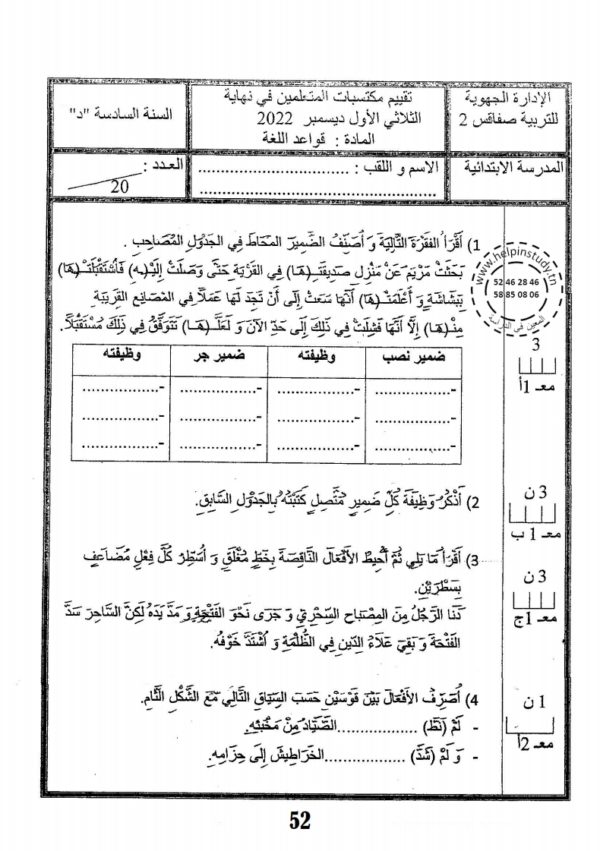 الإدارة الجهوية
للتربية صفاقس 2
تقييم مكتسبات المتعلمين في نهاية
الثلاثي الأول ديسمبر 2022
المادة : قواعد اللغة
السنة السادسة "د"
المدرسة الابتدائية
الاسم و اللقب : ................................
................................................
العدد :
20
www.helpinstudy.tn
52 46 28 46
58 85 08 06
المعين في الدراسة
1) أَقْرَأُ الفَقْرَةَ التَّالِيَةَ وَ أُصَنِّفُ الضَّمِيرَ المُحَاطَ فِي الجَدْوَلِ المُصَاحِبِ .
بَحَثَتْ مَرْيَمُ عَنْ مَنْزِلِ صَدِيقَتِـ(هَا) فِي القَرْيَةِ حَتَّى وَصَلَتْ إِلَيْـ(هِ) فَاسْتَقْبَلَتْـ(هَا)
بِبَشَاشَةٍ وَ أَعْلَمَتْـ(هَا) أَنَّهَا سَعَتْ إِلَى أَنْ تَجِدَ لَهَا عَمَلًا فِي المَصَانِعِ القَرِيبَةِ
مِنْـ(هَا) إِلَّا أَنَّهَا فَشِلَتْ فِي ذَلِكَ إِلَى حَدِّ الآنَ وَ لَعَلَّـ(هَا) تَتَوَفَّقُ فِي ذَلِكَ مُسْتَقْبَلًا.
3
معـ 1أ
ضمير نصب وظيفته ضمير جر وظيفته
-............ -............ -............ -............
-............ -............ -............ -............
-............ -............ -............ -............
2) أَذْكُرُ وَظِيفَةَ كُلِّ ضَمِيرٍ مُتَّصِلٍ كَتَبْتُهُ بِالجَدْوَلِ السَّابِقِ.
3 ن
معـ 1 ب
3) أَقْرَأُ مَا يَلِي ثُمَّ أُحِيطُ الأَفْعَالَ النَّاقِصَةَ بِخَطٍّ مُغْلَقٍ وَ أُسَطِّرُ كُلَّ فِعْلٍ مُضَاعَفٍ
بِسَطْرَيْنِ.
دَنَا الرَّجُلُ مِنَ المِصْبَاحِ السِّحْرِيِّ وَ جَرَى نَحْوَ الفَتْحَةِ وَ مَدَّ يَدَهُ لَكِنَّ السَّاحِرَ سَدَّ
الفَتْحَةَ وَ بَقِيَ عَلَاءُ الدِّينِ فِي الظُّلْمَةِ وَ اشْتَدَّ خَوْفُهُ.
3 ن
معـ 1ج
4) أُصَرِّفُ الأَفْعَالَ بَيْنَ قَوْسَيْنِ حَسَبَ السِّيَاقِ التَّالِي مَعَ الشَّكْلِ التَّامِ.
- لَمْ (نَطَّ) ..................الصَّيَّادُ مِنْ مَخْبَئِهِ.
- وَ لَمْ (شَدَّ) ..................الخَرَاطِيشَ إِلَى حِزَامِهِ.
1 ن
معـ 2أ
52